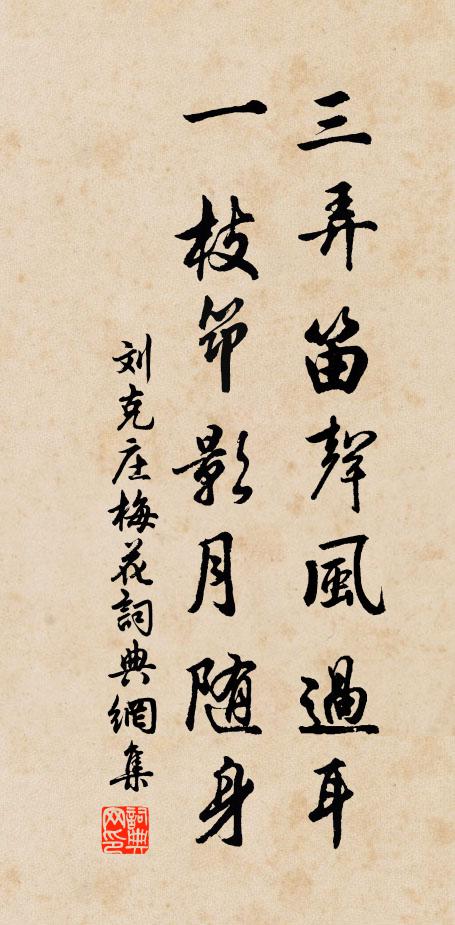 三弄笛聲風過耳
一枝笻影月隨身
刘克庄梅花詞典網集
詞典網印